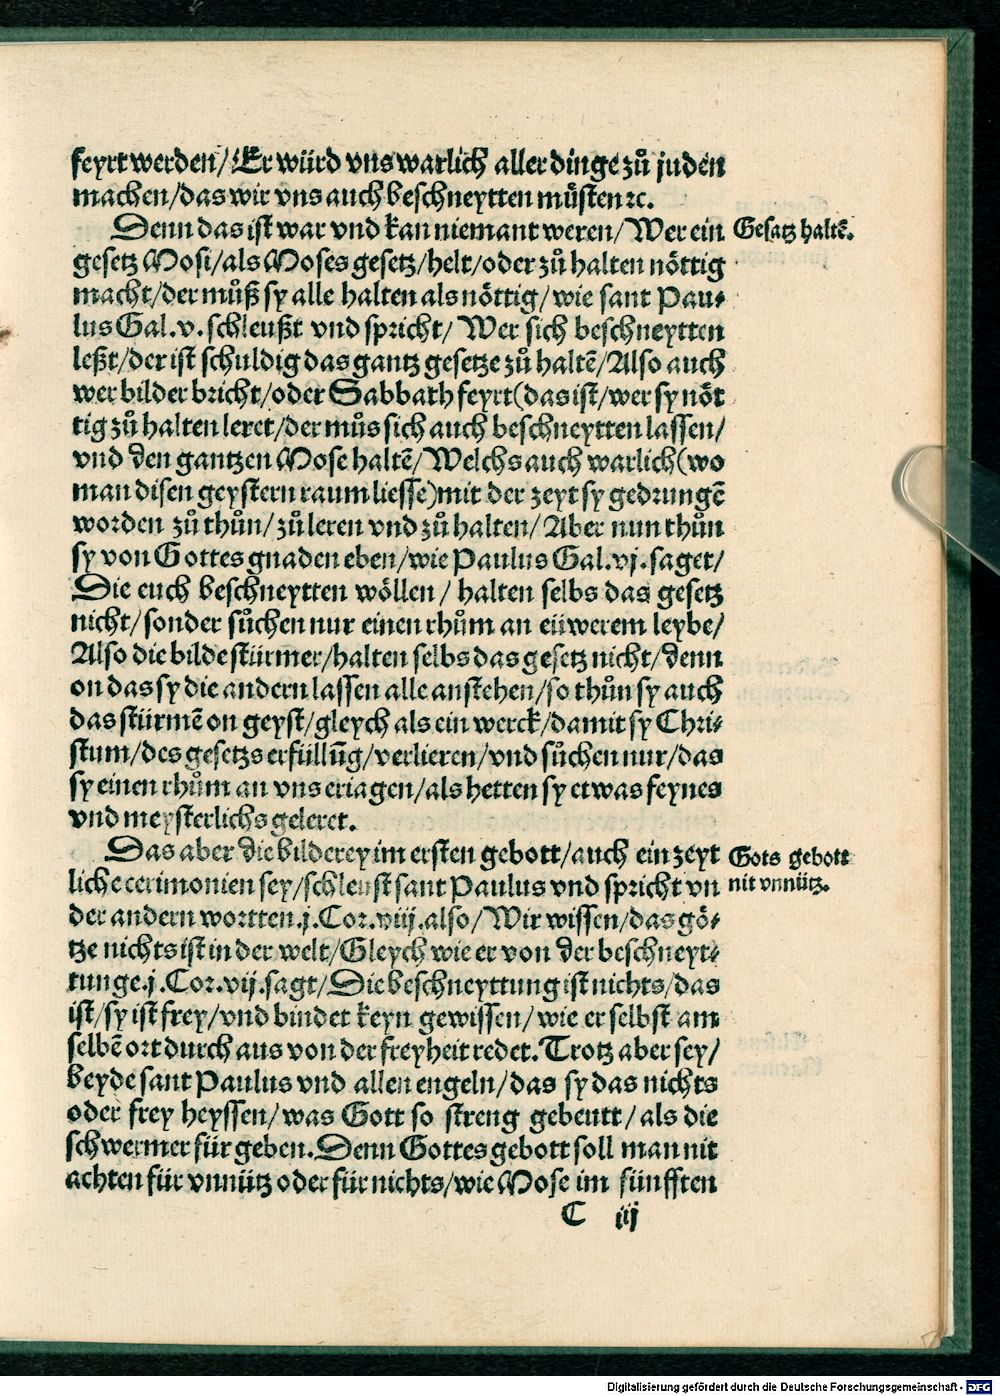 feyrt werden/ Er würd vns warlich aller dinge zů juden
machen/das wir vns auch beschneytten müsten ꝛc.
Denn das ist war vnd kan niemant weren/ Wer ein
Gesatz haltē.
gesetz Mosi/als Moses gesetz/helt/oder zů halten nöttig
macht/der můß sy alle halten als nöttig/wie sant Pau⸗
lus Gal.v.schleußt vnd spricht/ Wer sich beschneytten
leßt/der ist schuldig das gantz gesetze zů haltē/Also auch
wer bilder bricht/oder Sabbath feyrt(das ist/wer sy nöt
tig zů halten leret/der můs sich auch beschneytten lassen/
vnd den gantzen Mose haltē/Welchs auch warlich(wo
man disen geystern raum liesse)mit der zeyt sy gedrungē
worden zů thůn/zů leren vnd zů halten/Aber nun thůn
sy von Gottes gnaden eben/wie Paulus Gal.vj.saget/
Die euch beschneytten wöllen/ halten selbs das gesetz
nicht/sonder sůchen nur einen rhům an eüwerem leybe/
Also die bilde stürmer/halten selbs das gesetz nicht/denn
on das sy die andern lassen alle anstehen/so thůn sy auch
das stürmē on geyst/gleych als ein werck/damit sy Chri⸗
stum/des gesetzs erfüllūg/verlieren/vnd sůchen nur/das
sy einen rhům an vns eriagen/als hetten sy etwas feynes
vnd meysterlichs geleret.
Das aber die bilderey im ersten gebott/auch ein zeyt
Gots gebott
nit vnnütz.
liche cerimonien sey/schleust sant Paulus vnd spricht vn
der andern wortten.j.Cor.viij.also/Wir wissen/das gö⸗
tze nichts ist in der welt/Gleych wie er von der beschneyt⸗
tunge.j.Cor.vij.sagt/Die beschneyttung ist nichts/das
ist/sy ist frey/vnd bindet keyn gewissen/wie er selbst am
selbē ort durch aus von der freyheit redet.Trotz aber sey/
beyde sant Paulus vnd allen engeln/das sy das nichts
oder frey heyssen/was Gott so streng gebeutt/als die
schwermer für geben.Denn Gottes gebott soll man nit
achten für vnnütz oder für nichts/wie Mose im fünfften
C iij
Digitalisierung gefördert durch die Deutsche Forschungsgemeinschaft - DFG